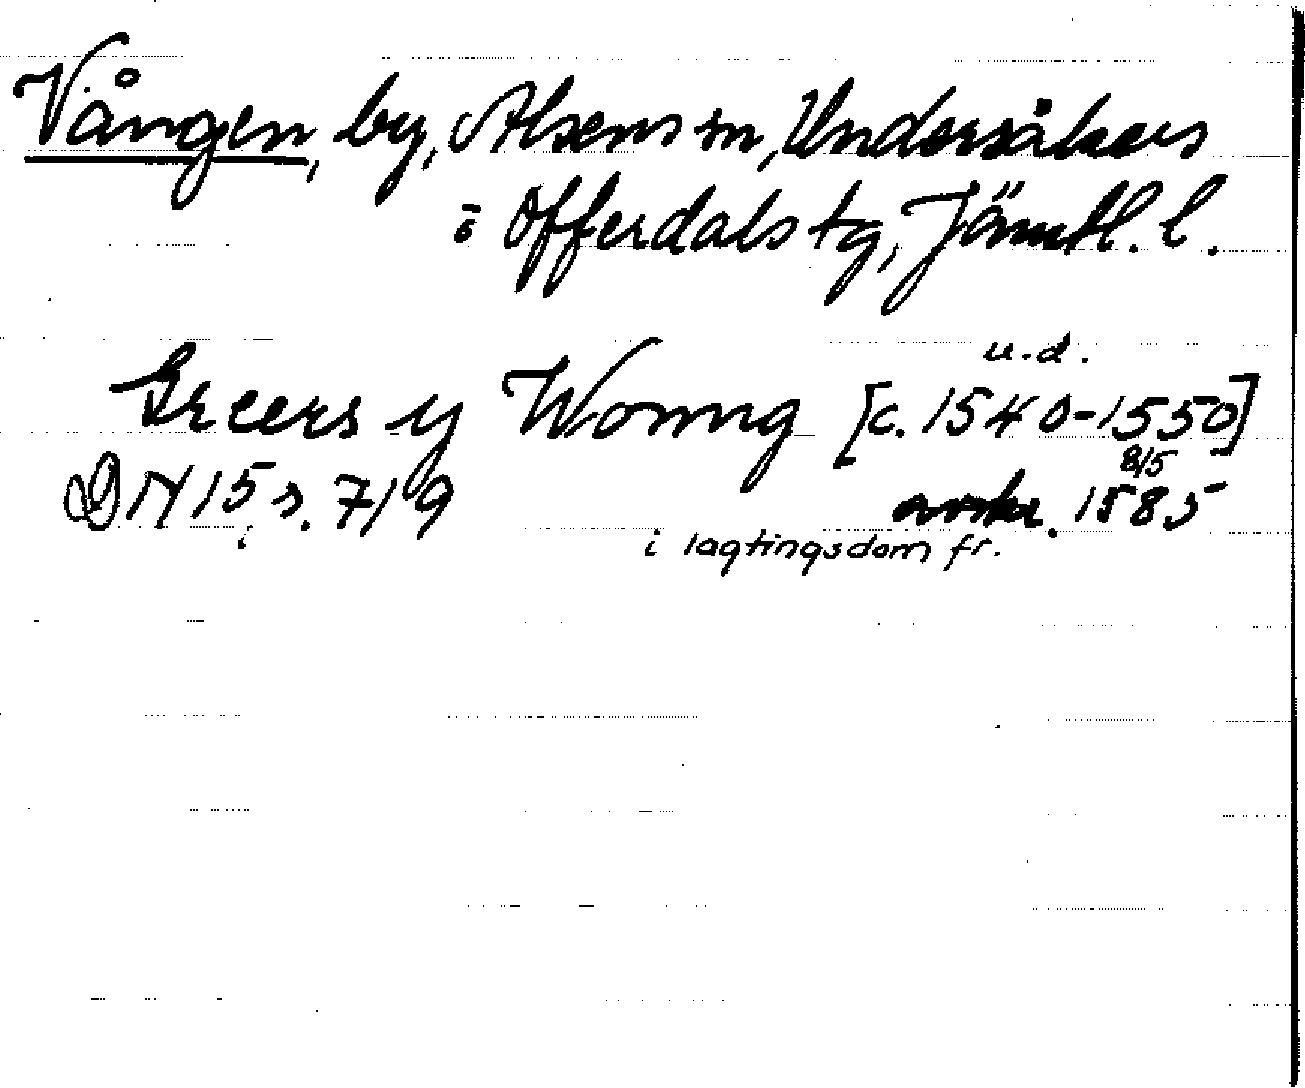 Vången, by, Alsens sn, Undersåkers
o Offerdals tg, Jämtl. l.
u.d.
Greers y Wonng [c. 1540-1550]
8/5
DN 15 s. 719 avskr. 1585
i lagtingsdom fr.